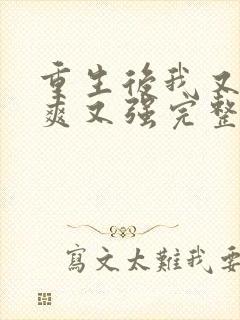 重生後我又
爽又強完整
寫文太難我要